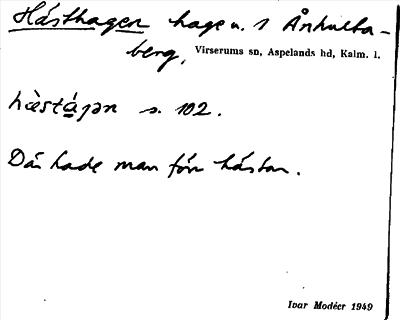 Hästhagen hage u. 1 Ånhulta-
berg, Virserums sn, Aspelands hd, Kalm. l.
hæ̀stágən s. 102.
Där hade man förr hästar.
Ivar Modéer 1949